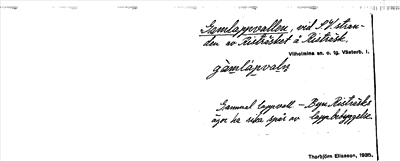 Gamlappvallen, vid S.V. stran-
den av Risträsket å Risträsk.
Vilhelmina sn. o. tg. Västerb. l.
gàmlápvaln
Gammal lappvall – Byn Risträsks
ägor ha rika spår av lappbebyggelse.
Thorbjörn Eliasson, 1935.